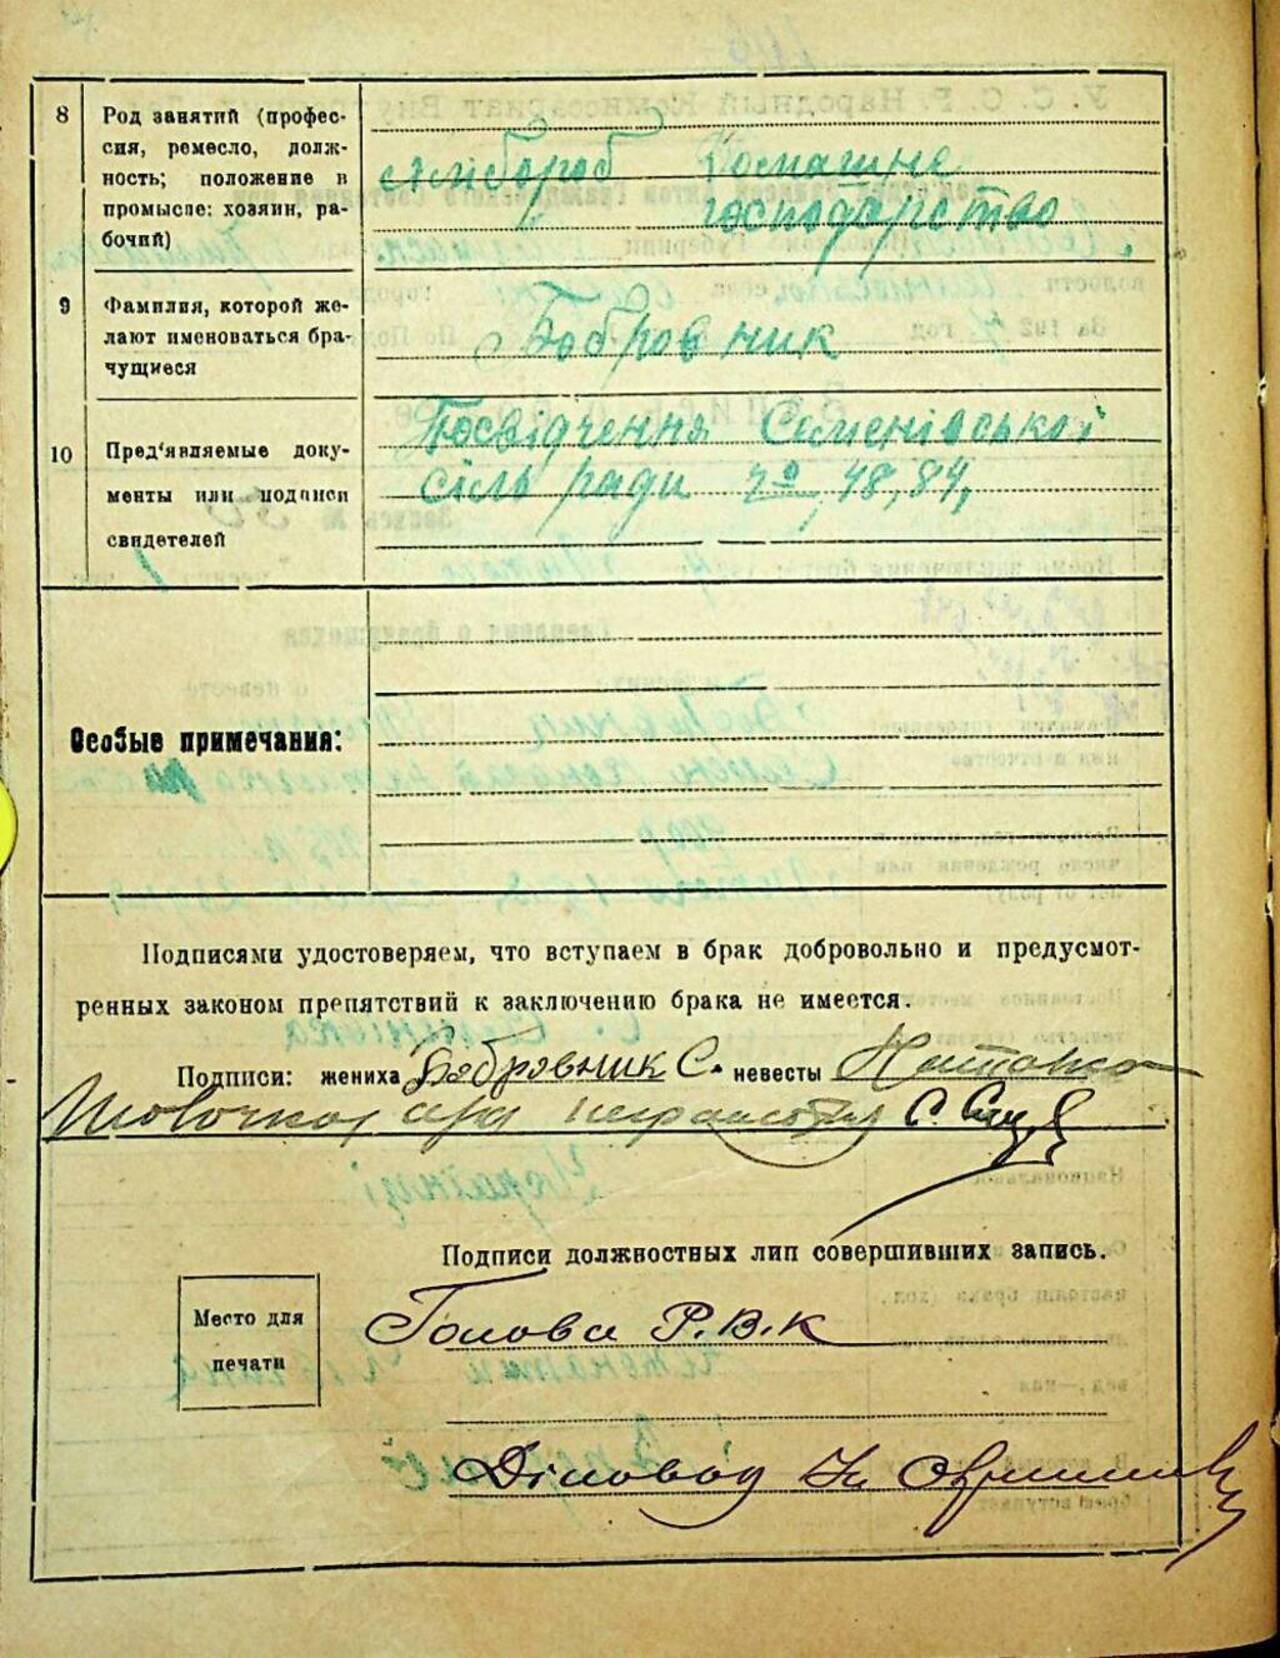 8
Род занятий (профес-
сия, ремесло, долж-
ность; положение в
промысле: хозяин, ра-
бочий)
хлібороб Домашнє
господарство
9
Фамилия, которой же-
лают именоваться бра-
чущиеся
Бобровник
10
Пред'являемые доку-
менты или подписи
свидетелей
Посвідчення Семенівської
сіль ради 48, 84,
Особые примечания:
Подписями удостоверяем, что вступаем в брак добровольно и предусмот-
ренных законом препятствий к заключению брака не имеется.
Подписи: жениха Бобровник С. невесты
С.
Подписи должностных лип совершивших запись.
Место для
печати
Голова Р.В.К
Діловод